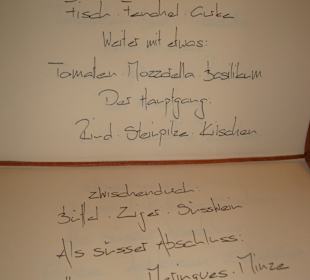 Fisch . Fenchel . Gurke
Weiter mit etwas:
Tomaten . Mozzarella . Basilikum
Der Hauptgang:
Rind . Steinpilze . Kirschen
Zwischendurch:
Büffel . Ziger . Süsswein
Als süsser Abschluss:
Meringues . Minze